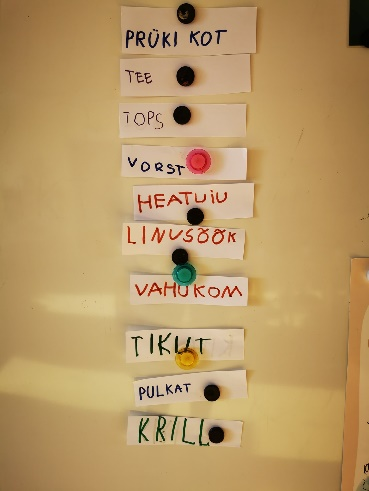 PRÜKI KOT
TEE
TOPS
VORST
HEATUIU
LINUSÖÖK
VAHUKOM
TIKUT
PULKAT
KRILL